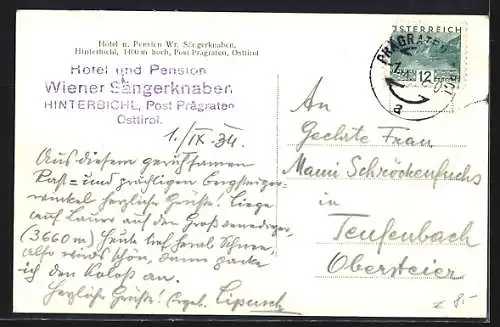 Hotel u. Pension Wr. Sängerknaben,
Hinterbichl, 1400 m hoch, Post Prägraten, Osttirol
Hotel und Pension
Wiener Sängerknaben
HINTERBICHL, Post Prägraten
Osttirol.
1./IX. 34.
Aus diesem geruhsamen
Rast= und prächtigen Bergsteiger-
winkel herzliche Grüße! Liege
auf Lauer auf den Großvenediger,
(3660 m) Heute tief herab Schnee,
also wirds schön, dann packe
ich den Koloß an.
Herzliche Grüße!
ÖSTERREICH
12
PRÄGRATEN
a
An
Geehrte Frau
Mami Schröckenfuchs
in
Teufenbach
Obersteier
8.-